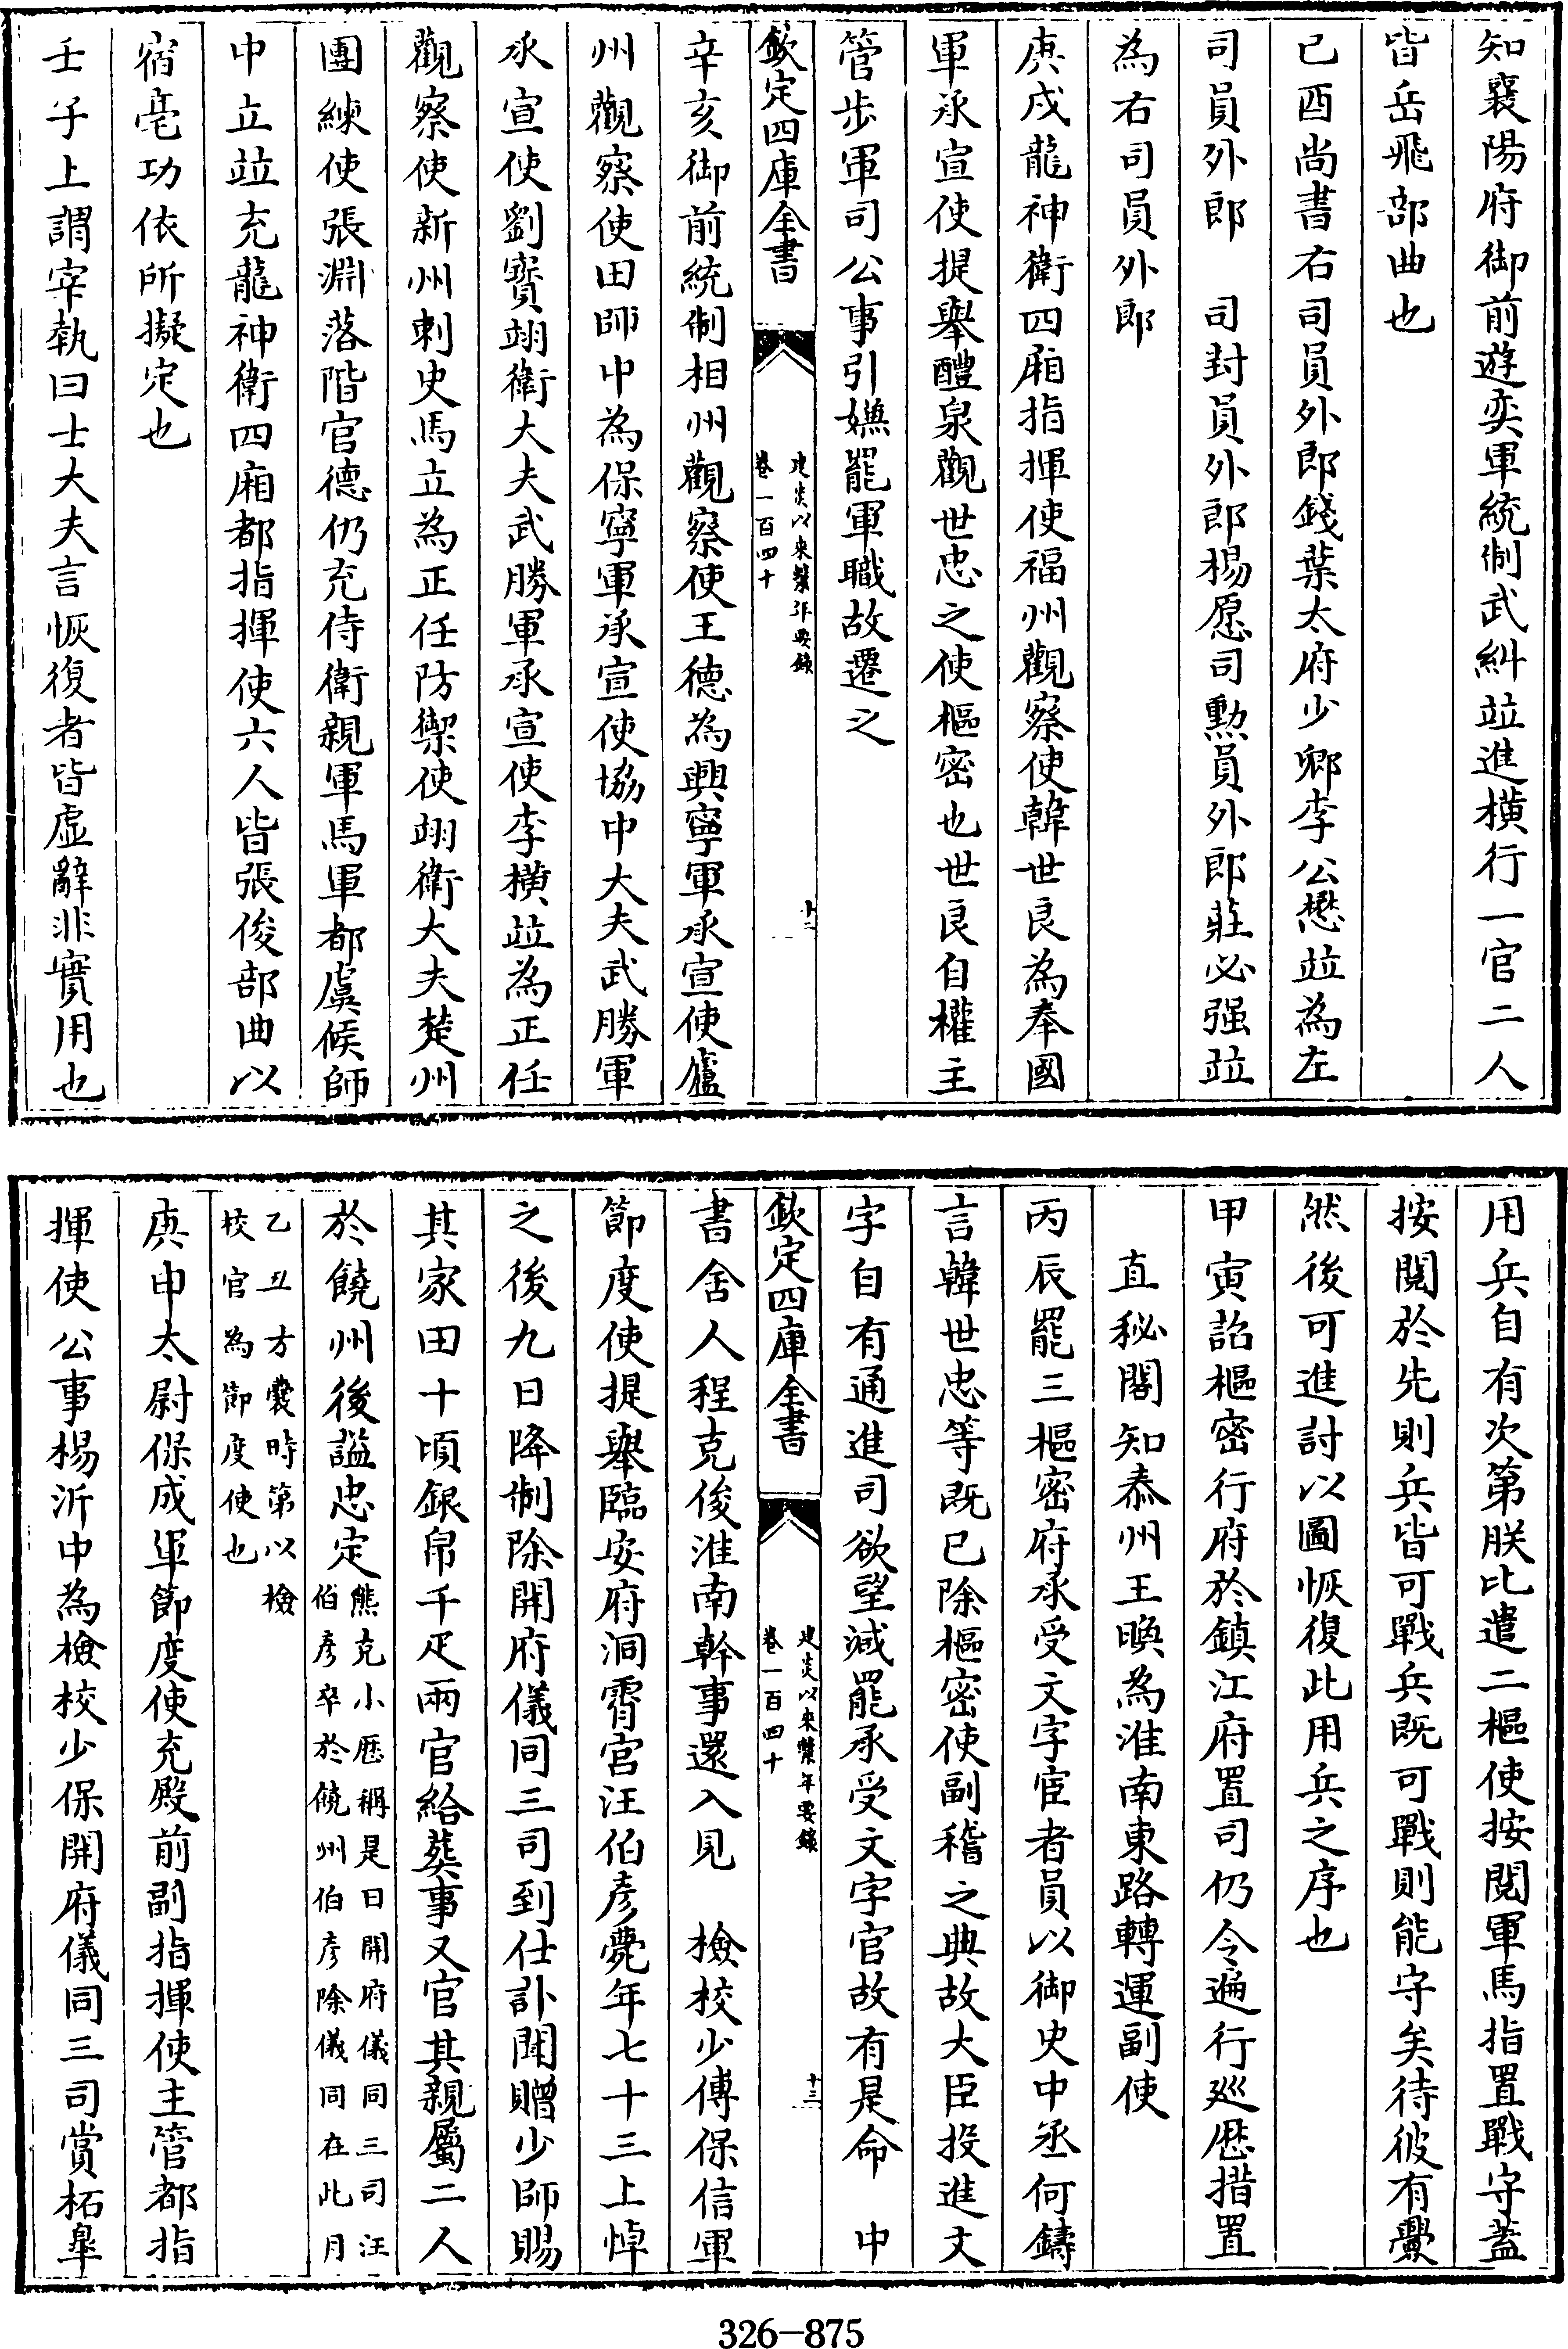 知襄陽府御前遊奕軍統制武糾竝進橫行一官二人
皆岳飛部曲也
己酉尚書右司員外郎錢葉太府少卿李公懋竝為左
司員外郎　司封員外郎楊愿司勲員外郎莊必强竝
為右司員外郎
庚戌龍神衛四廂指揮使福州觀察使韓世良為奉國
軍承宣使提舉醴泉觀世忠之使樞密也世良自權主
管步軍司公事引嫌罷軍職故遷之
欽定四庫全書
建炎以來繫年要録
卷一百四十
十二
辛亥御前統制相州觀察使王德為興寧軍承宣使廬
州觀察使田師中為保寧軍承宣使協中大夫武勝軍
承宣使劉寶翊衛大夫武勝軍承宣使李橫竝為正任
觀察使新州刺史馬立為正任防禦使翊衛大夫楚州
團練使張淵落階官德仍充侍衛親軍馬軍都虞候師
中立竝充龍神衛四廂都指揮使六人皆張俊部曲以
宿亳功依所擬定也
壬子上謂宰執曰士大夫言恢復者皆虛辭非實用也
用兵自有次第朕比遣二樞使按閱軍馬指置戰守蓋
按閱於先則兵皆可戰兵既可戰則能守矣待彼有釁
然後可進討以圖恢復此用兵之序也
甲寅詔樞密行府於鎮江府置司仍令遍行廵歴措置
直秘閣知泰州王㬇為淮南東路轉運副使
丙辰罷三樞密府承受文字宦者員以御史中丞何鑄
言韓世忠等既已除樞密使副稽之典故大臣投進文
字自有通進司欲望減罷承受文字官故有是命　中
欽定四庫全書
建炎以來繫年要録
卷一百四十
十三
書舍人程克俊淮南幹事還入見　檢校少傅保信軍
節度使提舉臨安府洞霄宮汪伯彥薨年七十三上悼
之後九日降制除開府儀同三司到仕訃聞贈少師賜
其家田十頃銀帛千疋兩官給葬事又官其親屬二人
於饒州後諡忠定熊克小歴稱是日開府儀同三司汪
伯彥卒於饒州伯彥除儀同在此月
乙丑方襲時第以檢
校官為節度使也
庚申太尉保成軍節度使充殿前副指揮使主管都指
揮使公事楊沂中為檢校少保開府儀同三司賞柘臯
326-875